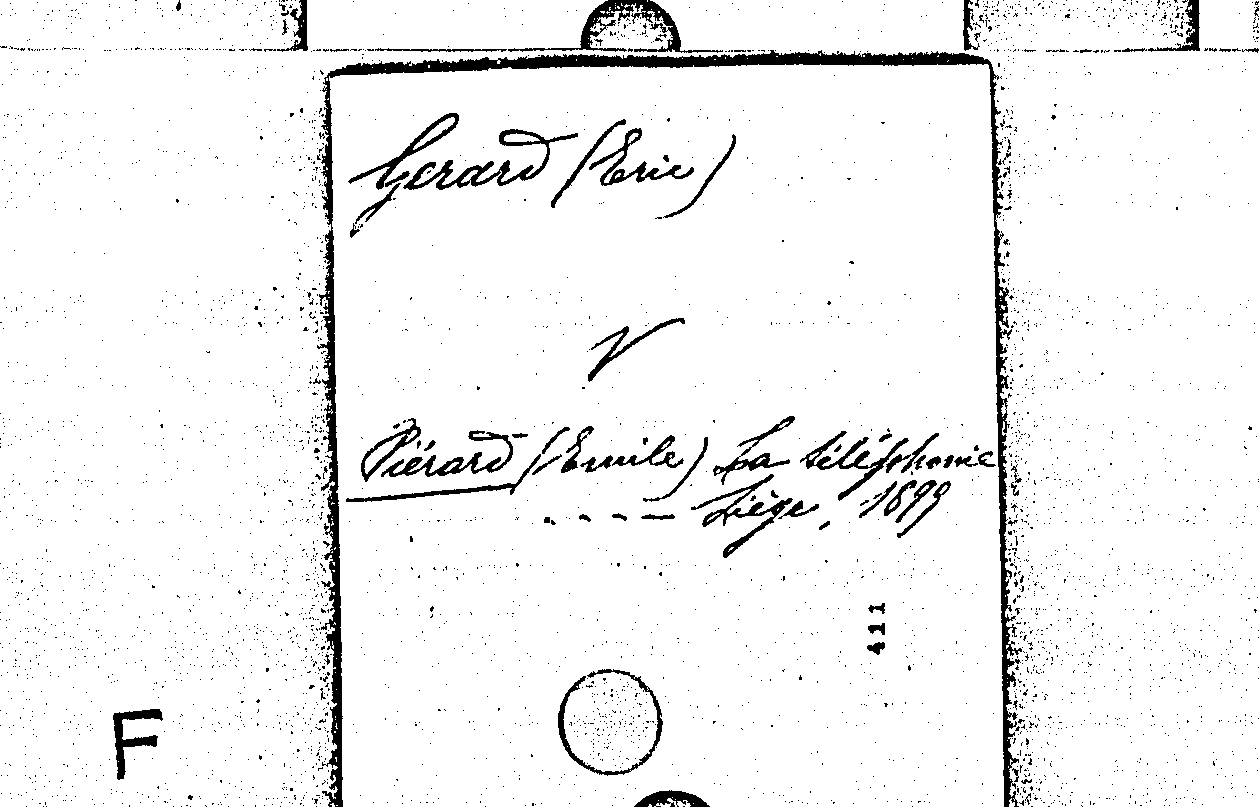 Gerard (Eric)
V
Piérard (Emile) La téléphonie
. - - - Liège, 1899
411
F